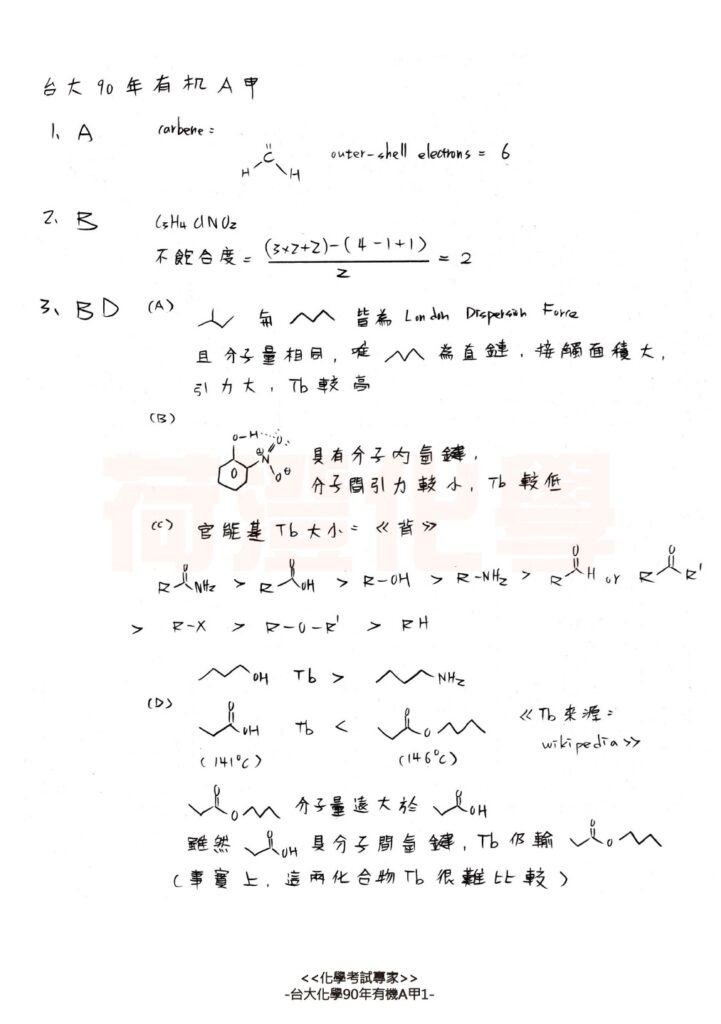 台大90年有机A甲
1、A carbene: C H H outer-shell electrons = 6
2、B C3H4ClNO2
不飽合度 = (3x2+2)-(4-1+1) / 2 = 2
3、BD (A) 與 皆為 London Dispersion Force
且分子量相同，唯 為直鏈，接觸面積大，
引力大，Tb較高
(B) O-H O N⊕ O⊖ 具有分子內氫鍵，
分子間引力較小，Tb較低
(C) 官能基Tb大小：《背》
R O NH2 > R O OH > R-OH > R-NH2 > R O H or R O R'
> R-X > R-O-R' > RH
OH Tb > NH2
(D) O OH Tb < O O 《Tb來源：
(141°C) (146°C) wikipedia》
O O 分子量遠大於 O OH
雖然 O OH 具分子間氫鍵，Tb仍輸 O O
(事實上，這兩化合物Tb很難比較)
荷澄化學
<<化學考試專家>>
-台大化學90年有機A甲1-